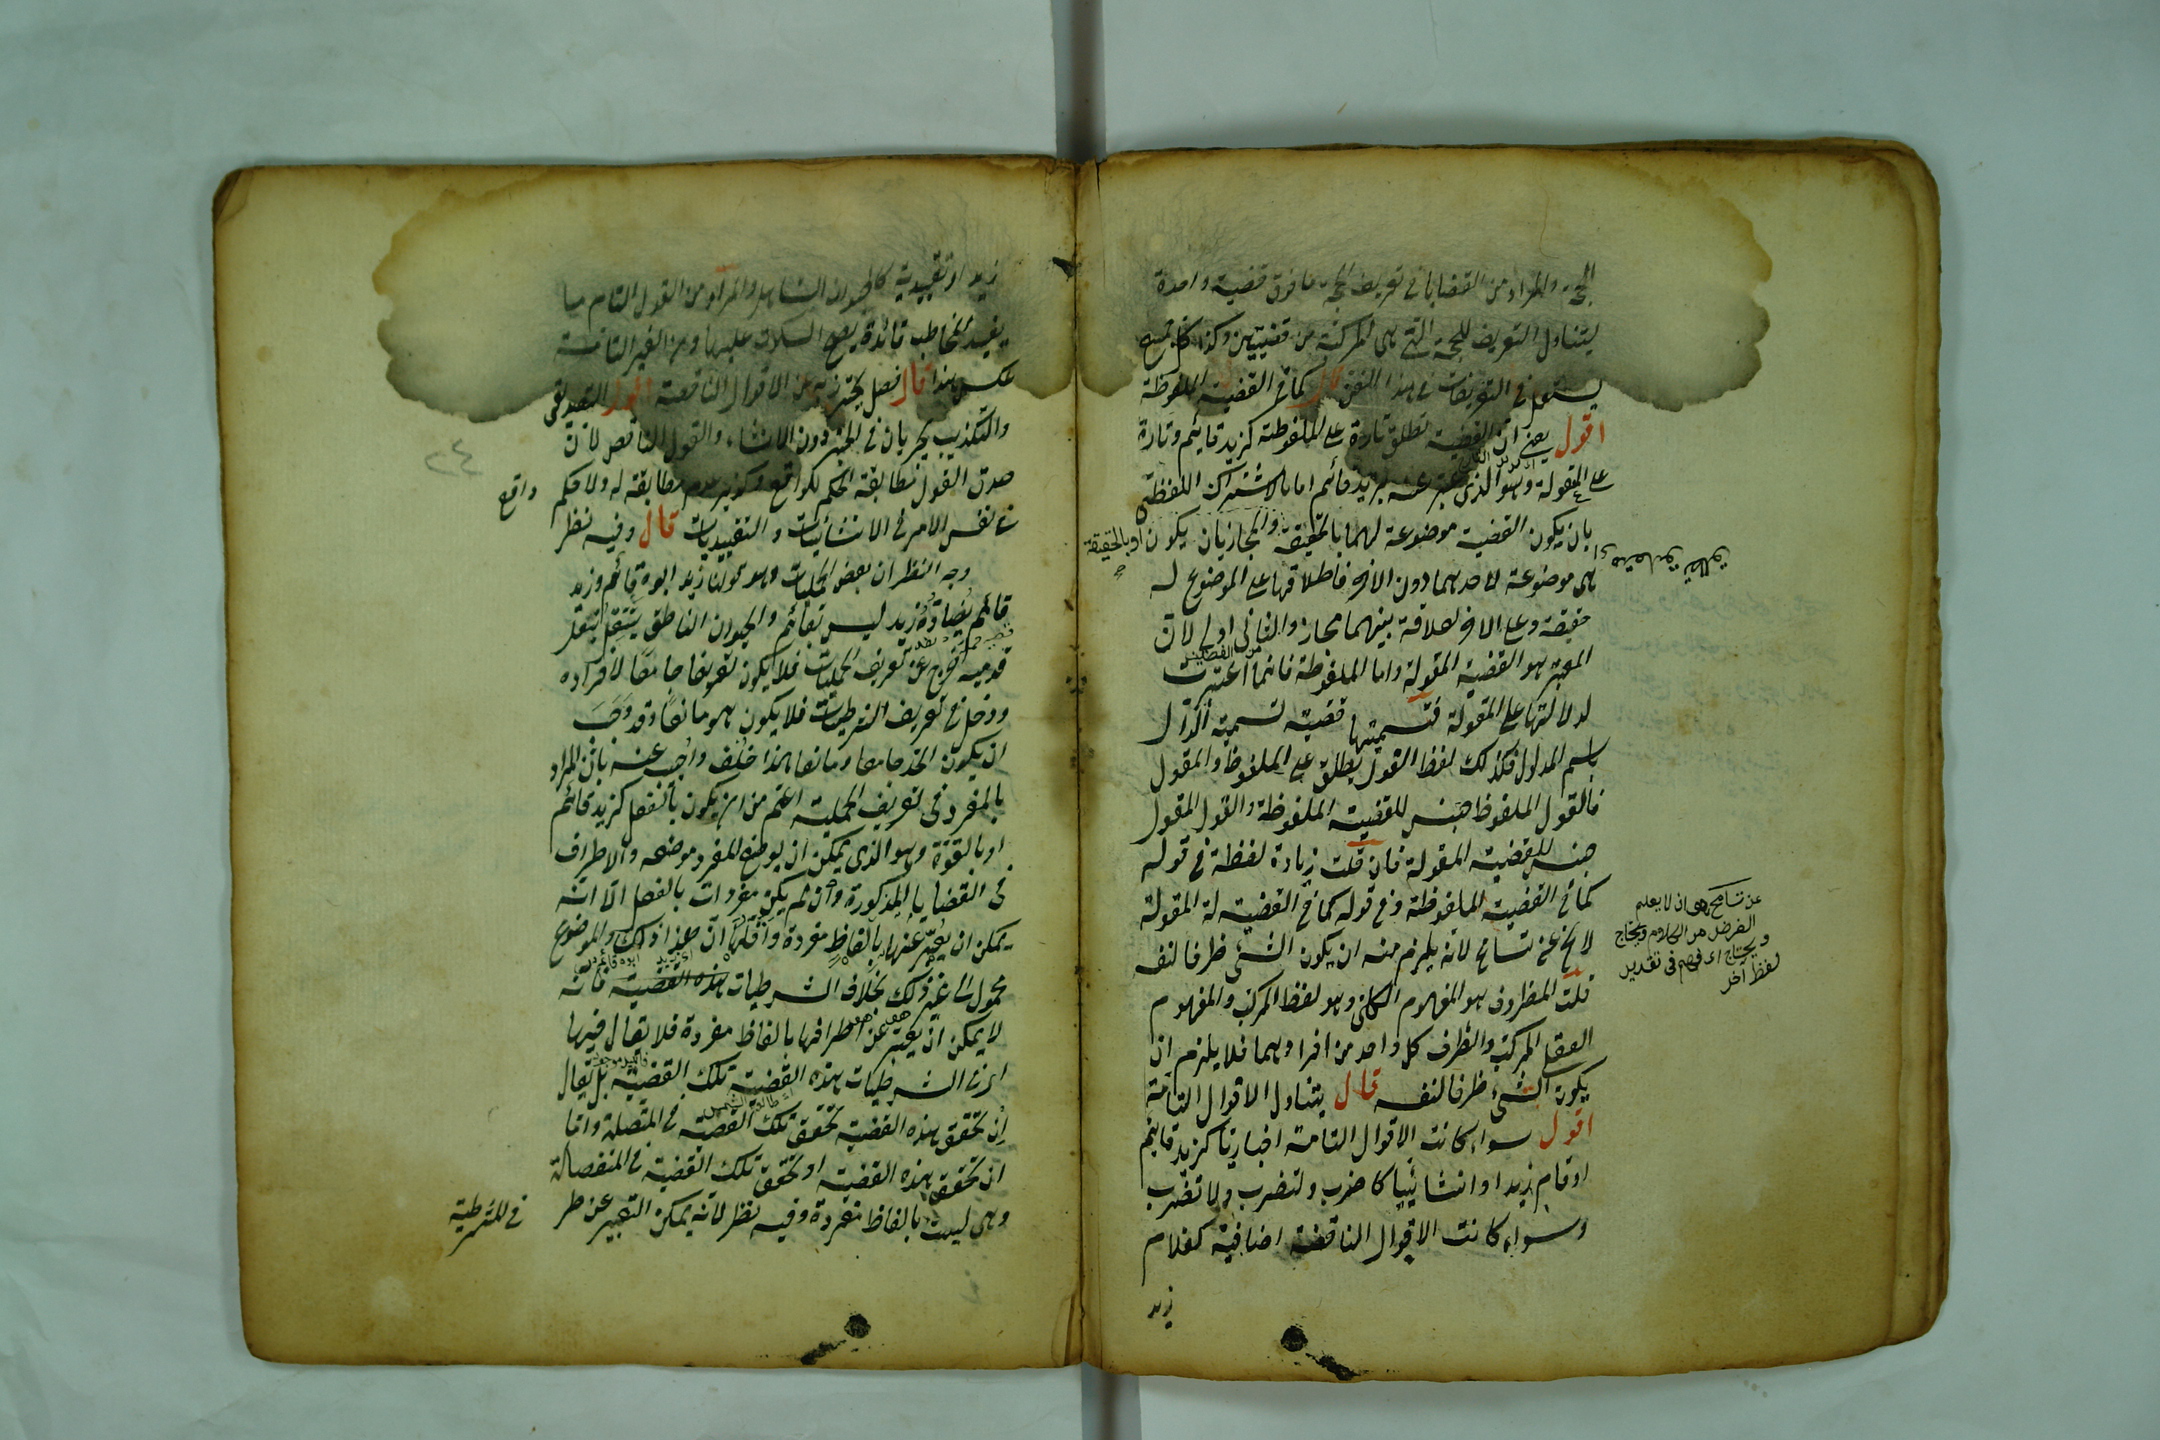 الحجة والمراد من القضايا في تعريف الحجة ما فوق قضية واحدة
ليتناول التعريف للحجة التي هي المركبة من قضيتين وكذا كل جمع
يستعمل في التعريفات في هذا الفن قال كما في القضية الملفوظة
اقول يعني ان القضية تطلق تارة على الملفوظة كزيد قائم وتارة
على المقولة وهو الذي عبر عنه بزيد قائم اما بالاشتراك اللفظي
بان يكون القضية موضوعة لهما بالحقيقة والمجاز بان يكون
او بالحقيقة
هي موضوعة لاحدهما دون الاخر فاطلاقها على الموضوع له
حقيقة وعلى الاخر لعلاقة بينهما مجاز والثاني اولى لان
المعتبر هو القضية المقولة واما الملفوظة فانما اعتبرت
لدلالتها على المقولة فتسميتها قضية تسمية الدال
باسم المدلول فكذلك لفظ القول يطلق على الملفوظ والمقول
فالقول الملفوظ جنس للقضية الملفوظة والقول المقول
جنس للقضية المقولة فان قلت زيادة لفظة في قوله
كما في القضية الملفوظة وفي قوله كما في القضية المقولة
لا يخ عن تسامح لانه يلزم منه ان يكون الشئ ظرفا لنفسه
قلت المظروف هو المفهوم الكلي وهو لفظ المركب والمفهوم
العقل المركب والظرف كل واحد من افرادهما فلا يلزم ان
يكون الشئ ظرفا لنفسه قال يتناول الاقوال التامة
اقول سواء كانت الاقوال التامة اخباريا كزيد قائم
او قام زيد او انشائيا كاضرب ولتضرب ولا تضرب
وسواء كانت الاقوال الناقصة اضافية كغلام
زيد
عن تسامح وهي ان لا يعلم
الغرض من الكلام ويحتاج
ويحتاج الى فهم في تقدير
لفظ آخر
زيد او تقييدية كالحيوان الناطق والمراد من القول التام ما
يفيد المخاطب فائدة يصح السكوت عليها ومن الغير التامة
عكس هذا قال فصل يحترز به عن الاقوال الناقصة اقول التصديق
والتكذيب يجريان في الخبر دون الانشاء والقول الناقص لان
صدق القول مطابقة الحكم للواقع وكذبه عدم مطابقته له ولا حكم
واقع
في نفس الامر في الانشائيات والتقييديات قال وفيه نظر
وجه النظر ان بعض الحمليات وهو قولنا زيد ابوه قائم وزيد
قائم يضاده زيد ليس بقائم والحيوان الناطق ينتقل بنقل
قدميه خرج عن تعريف الحمليات فلا يكون تعريفا جامعا لافراده
ودخل في تعريف الشرطيات فلا يكون هو مانعا وقد وجب
ان يكون الحد جامعا ومانعا هذا خلف واجيب عنه بان المراد
بالمفرد في تعريف الحملية اعم من ان يكون بالفعل كزيد قائم
او بالقوة وهو الذي يمكن ان يوضع المفرد موضعه والاطراف
في القضايا المذكورة وان لم يكن مفردات بالفعل الا انه
يمكن ان يعبر عنها بالفاظ مفردة واقلها ان هذا ذاك والموضوع
محمول الى غير ذلك بخلاف الشرطيات هذه القضية فانه
لا يمكن ان يعبر عن اطرافها بالفاظ مفردة فلا يقال فيها
اي في الشرطيات هذه القضية تلك القضية بل يقال
ان تحقق هذه القضية تحقق تلك القضية في المتصلة واما
ان تحقق هذه القضية او تحقق تلك القضية في المنفصلة
وهي ليست بالفاظ مفردة وفيه نظر لانه يمكن التعبير عن طر
في الشرطية